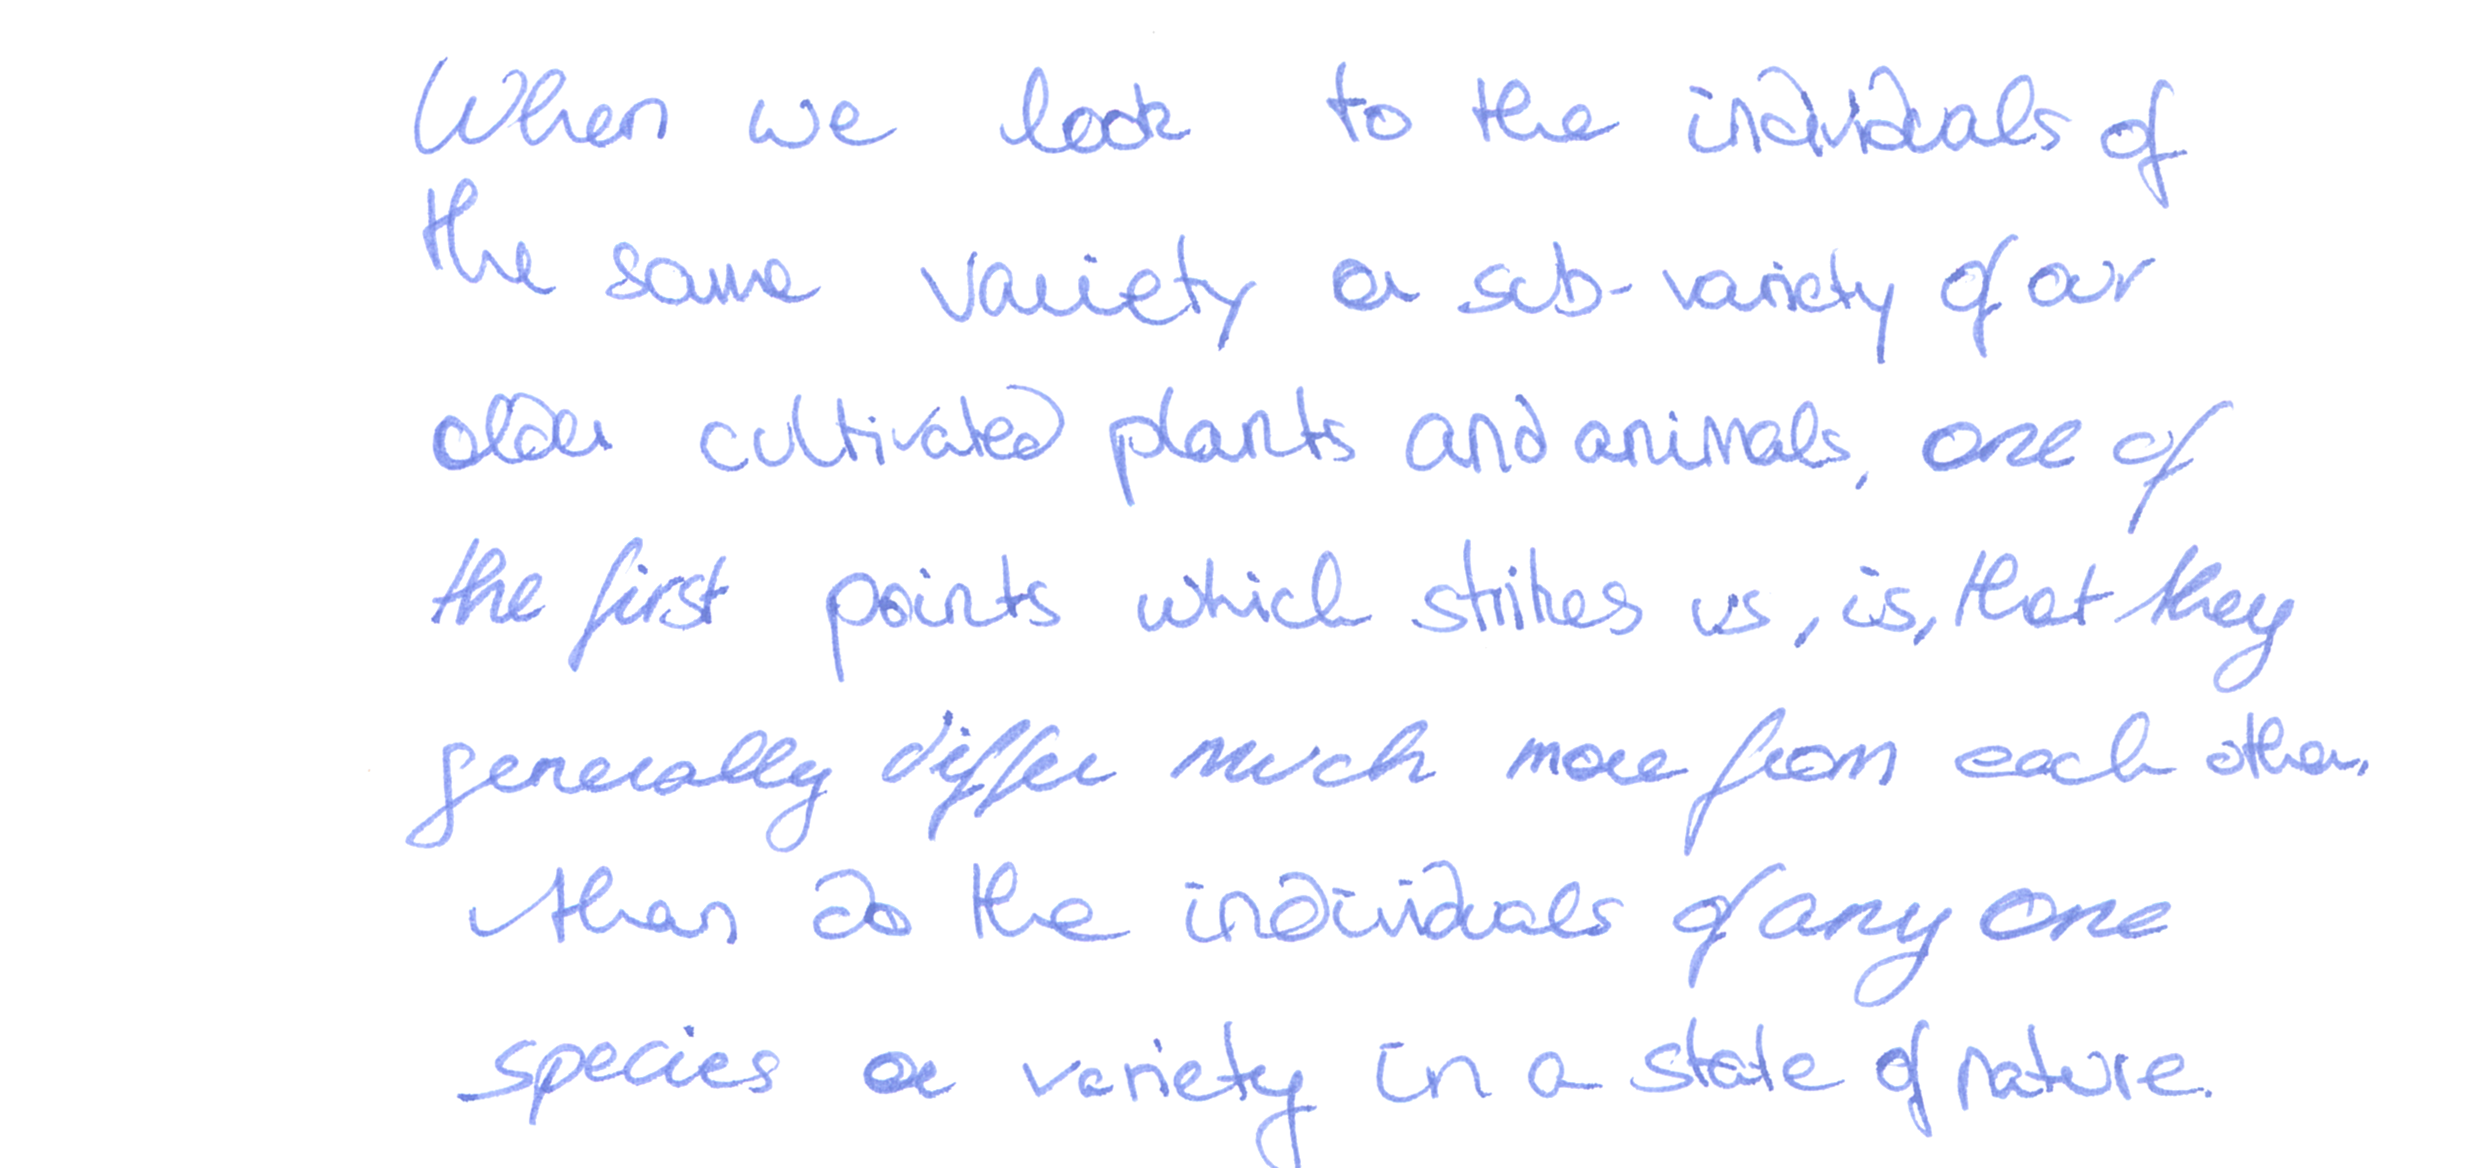 When we look to the individuals of
the same variety or sub-variety of our
older cultivated plants and animals, one of
the first points which strikes us, is, that they
generally differ much more from each other,
than do the individuals of any one
species or variety in a state of nature.